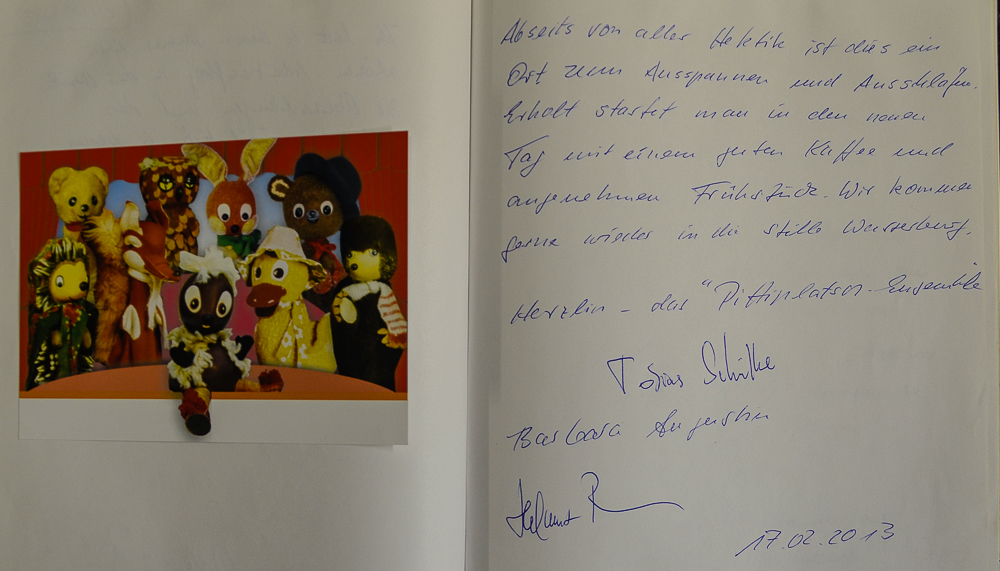 Abseits von aller Hektik ist dies ein
Ort zum Ausspannen und Ausschlafen.
Erholt startet man in den neuen
Tag mit einem guten Kaffee und
angenehmen Frühstück. Wir kommen
gerne wieder in die stille Wasserburg.
Herzlin - das "Pittiplatsch-Ensemble
Tobias Schülke
Barbara Augustin
Helmut
17.02.2013